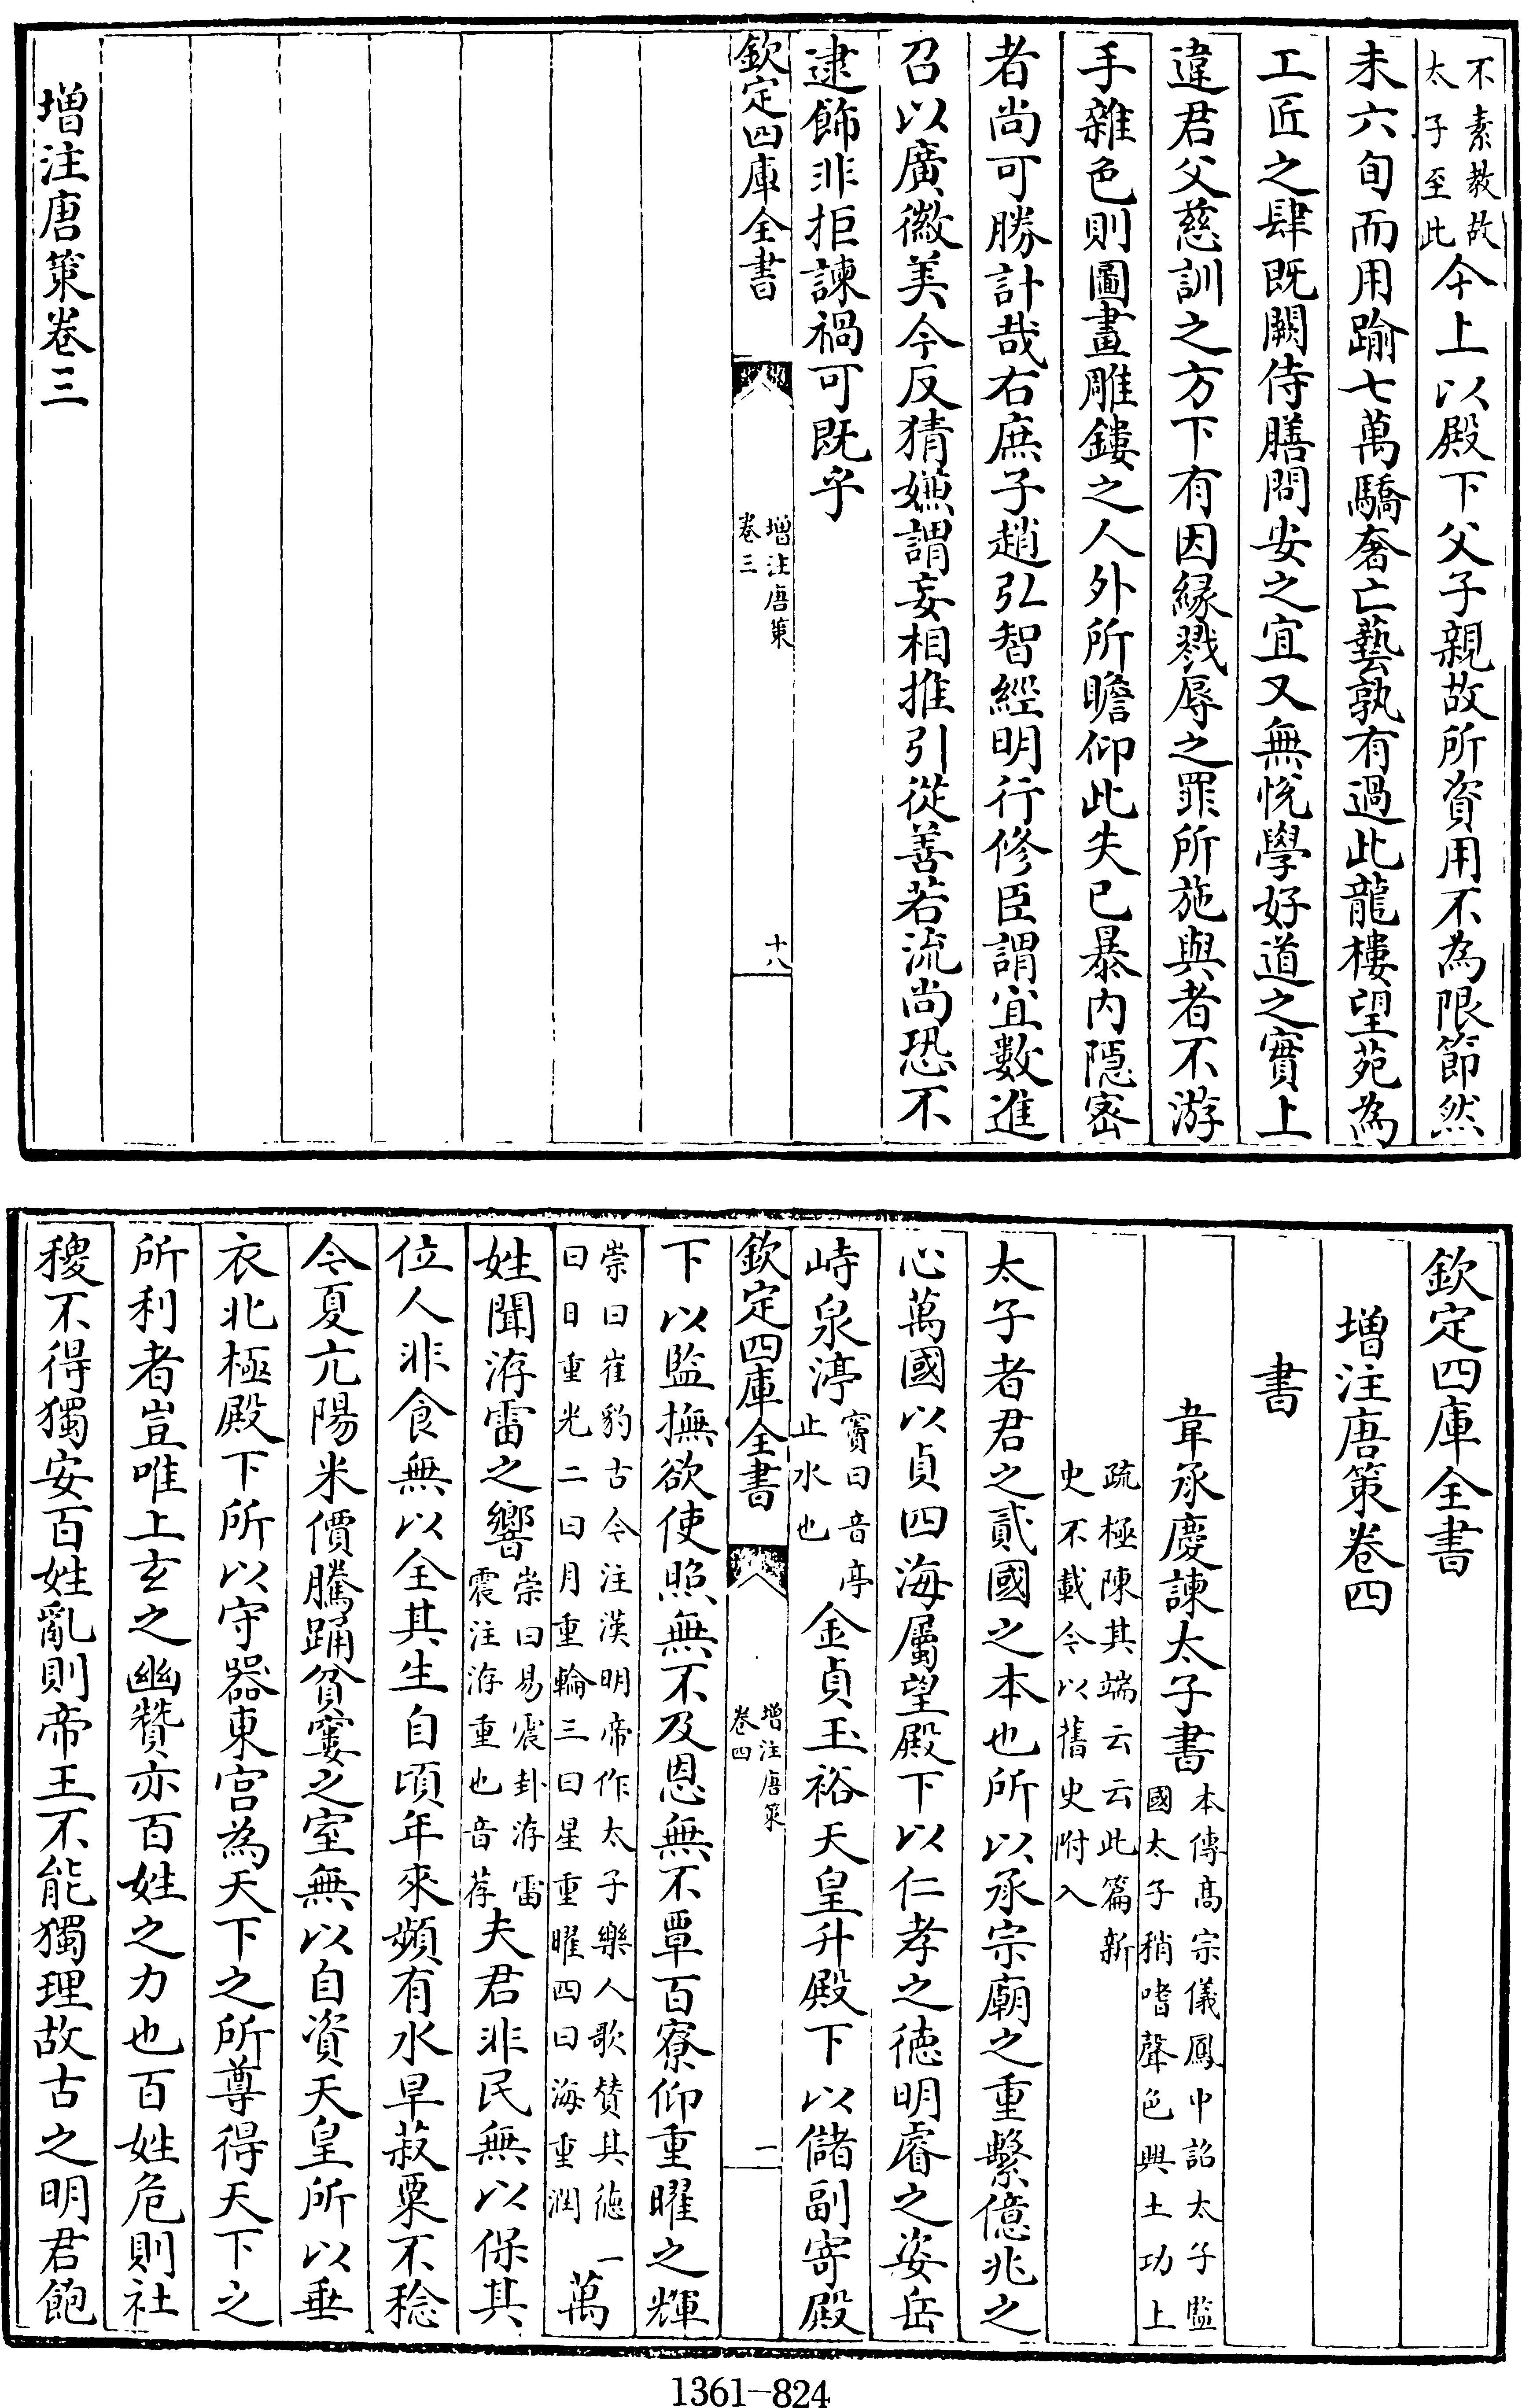 不素教故太子至此今上以殿下父子親故所資用不為限節然
未六旬而用踰七萬驕奢亡藝孰有過此龍樓望苑為
工匠之肆既闕侍膳問安之宜又無悅學好道之實上
違君父慈訓之方下有因緣戮辱之罪所施與者不游
手雜色則圖畫雕鏤之人外所瞻仰此失已暴内隱密
者尚可勝計哉右庶子趙弘智經明行修臣謂宜數進
召以廣徽美今反猜嫌謂妄相推引從善若流尚恐不
逮飾非拒諫禍可既乎
欽定四庫全書
增注唐策
卷三
十八
增注唐策卷三
欽定四庫全書
增注唐策卷四
書
韋承慶諫太子書本傳高宗儀鳳中詔太子監國太子稍嗜聲色興土功上
疏極陳其端云云此篇新史不載今以舊史附入
太子者君之貳國之本也所以承宗廟之重繫億兆之
心萬國以貞四海屬望殿下以仁孝之德明睿之姿岳
峙泉渟竇曰音亭止水也金貞玉裕天皇升殿下以儲副寄殿
欽定四庫全書
增注唐策
卷四
一
下以監撫欲使照無不及恩無不覃百寮仰重曜之輝
崇曰崔豹古今注漢明帝作太子樂人歌贊其德一曰日重光二曰月重輪三曰星重曜四曰海重潤萬
姓聞洊雷之響崇曰易震卦洊雷震注洊重也音荐夫君非民無以保其
位人非食無以全其生自頃年來頻有水旱菽粟不稔
今夏亢陽米價騰踊貧窶之室無以自資天皇所以垂
衣北極殿下所以守器東宮為天下之所尊得天下之
所利者豈唯上玄之幽贊亦百姓之力也百姓危則社
稷不得獨安百姓亂則帝王不能獨理故古之明君飽
1361-824